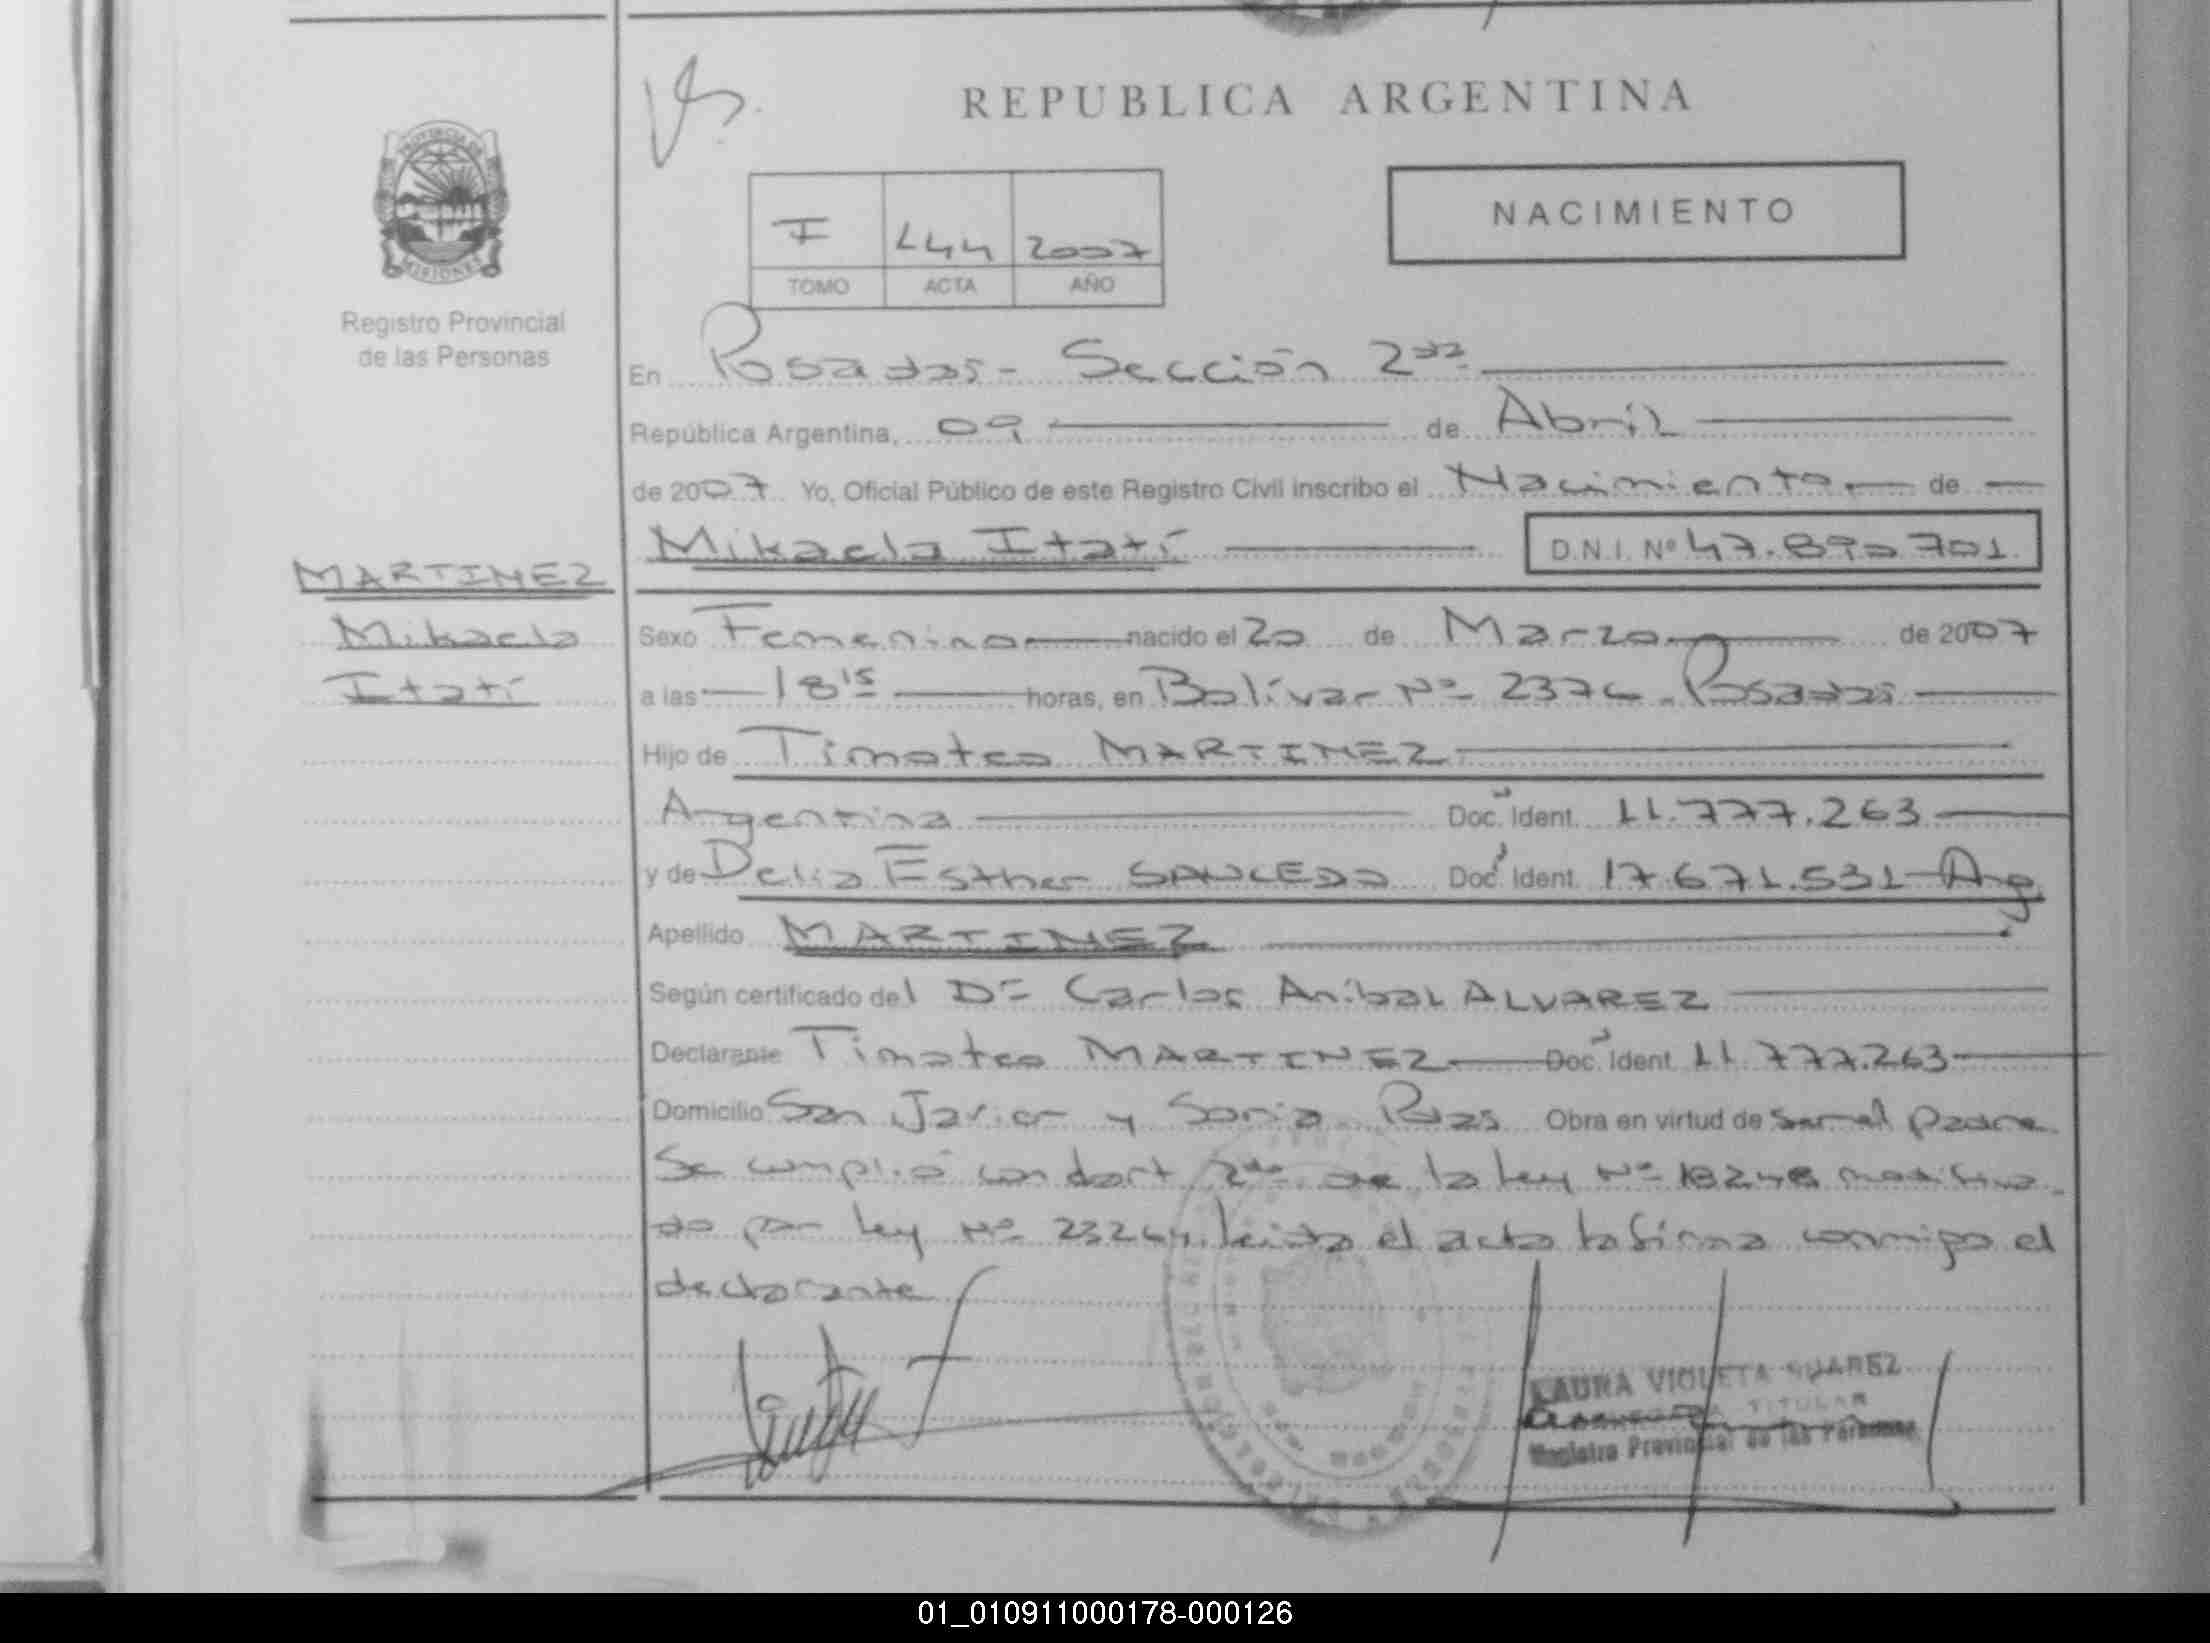 REPUBLICA ARGENTINA
PROVINCIA DE
MISIONES
Registro Provincial
de las Personas
NACIMIENTO
I 244 2007
TOMO ACTA AÑO
En Posadas - Sección 2da
República Argentina, 09 de Abril
de 2007 Yo, Oficial Público de este Registro Civil inscribo el Nacimiento de
Mikaela Itatí D.N.I. Nº 47.890.701
MARTINEZ
Mikaela
Itatí
Sexo Femenino nacido el 20 de Marzo de 2007
a las 18 15 horas, en Bolívar Nº 2376 - Posadas
Hijo de Timoteo MARTINEZ
Argentina Doc. Ident. 11.777.263
y de Delia Esther SAUCEDO Doc. Ident. 17.671.531 Arg.
Apellido MARTINEZ
Según certificado del Dr Carlos Anibal ALVAREZ
Declarante Timoteo MARTINEZ Doc. Ident. 11.777.263
Domicilio San Javier y Soria Obra en virtud de ser el padre.
Se cumplió con el art 2do de la Ley Nº 18248 modifica-
do por Ley Nº 23264. Leída el acta la firma conmigo el
declarante
LAURA VIOLETA SUAREZ
TITULAR
Registro Provincial de las Personas
01_010911000178-000126